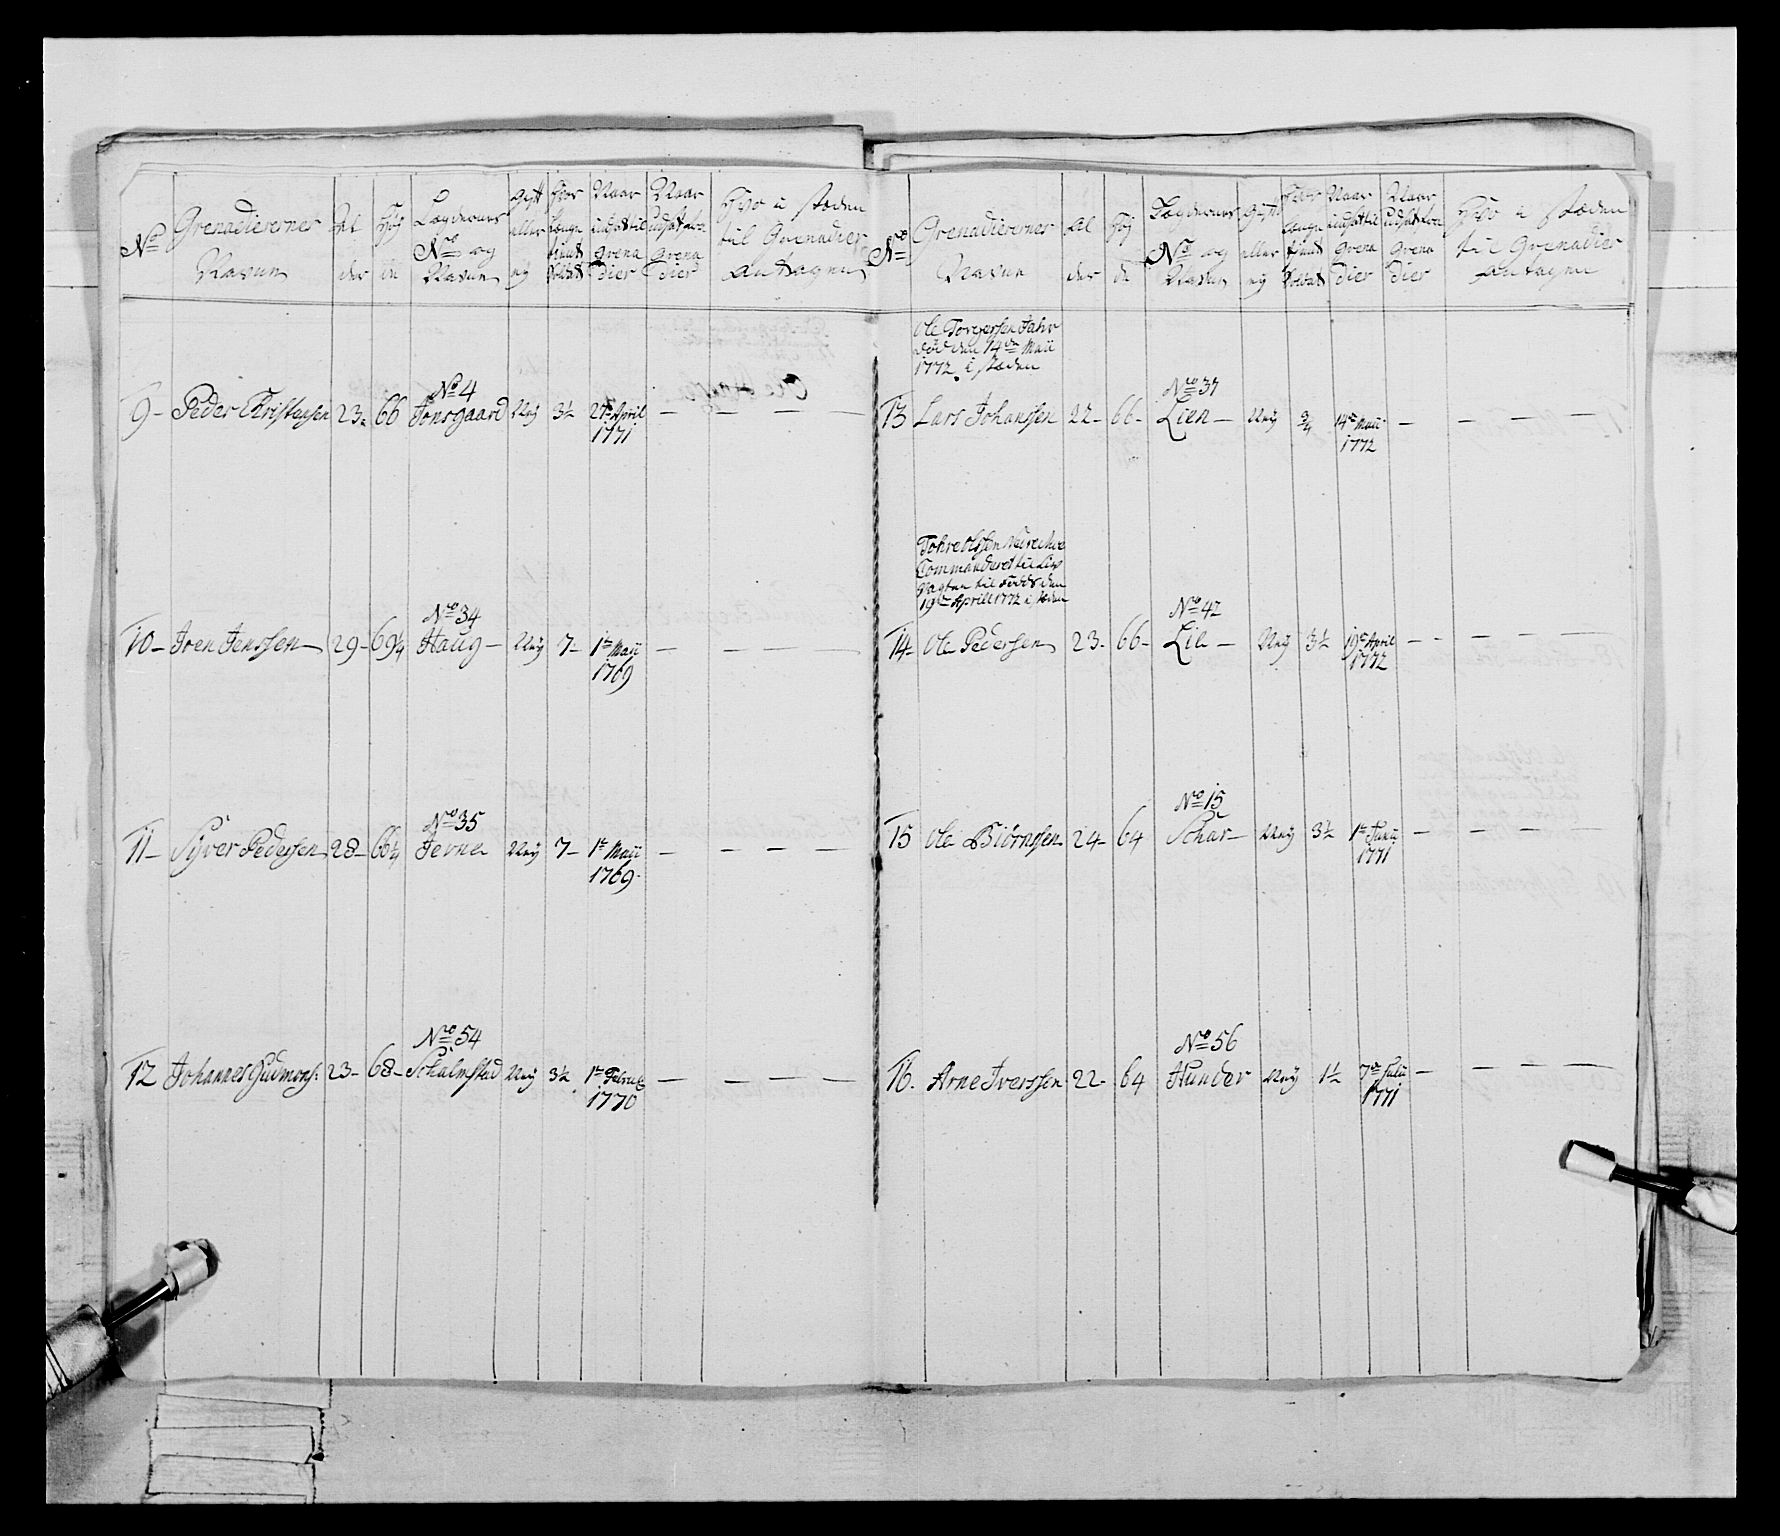 No
Grenadierernes
Nafne
Al
der
Høy
de
Lægdernes
No og
Nafne
Gift
eller
ey
Hvor
længe
tient
Soldat
Naar
udsat til
Grena
dier
Naar
udsat
Grena
dier
Hvo i stæden
til Grenadier
antagen
9 - Peder Christensen 23 - 66 No 4 Jonsgaard Uey 3½ 27de April 1771 — — — —
10 - Iven Jenssen 29 - 69¼ No 34 Haug - Uey 7 - 1te Maii 1769 — — — —
11 - Syver Pedersen 28 - 66¼ No 35 Jevne Uey 7 - 1te Maii 1769 — — — —
12 Johannes Gudmons: 23 - 68 - No 54 Schalmstad Uey 3½ 1te Febru 1770 — — — —
No
Grenadierernes
Nafne
Al
der
Høy
de
Lægdernes
No og
Nafne
Gift
eller
ey
Hvor
længe
tient
Soldat
Naar
udsat til
Grena
dier
Naar
Grena
dier
Hvo i stæden
til Grenadier
antagen
Ole Torgersen
død den 14de Maii
1772 i stæden
13 Lars Johanssen 22 - 66 - No 37 Lien - Uey ¾ 14de Maii 1772 — — — —
Tohre Olssen
Commanderet til Liv
Vagten til Fods den
19de Aprill 1772 i stæden
14 - Ole Pedersen 23 - 66 - No 42 Lie - Uey 3½ 19de April 1772 — — — —
15 Ole Biørnssen 24 - 64 No 15 Schar - Uey 3½ 1te Junii 1771 — — — —
16. Arne Iverssen 22 - 64 No 56 Hunder Uey 1½ 7de Julii 1771 — — — —